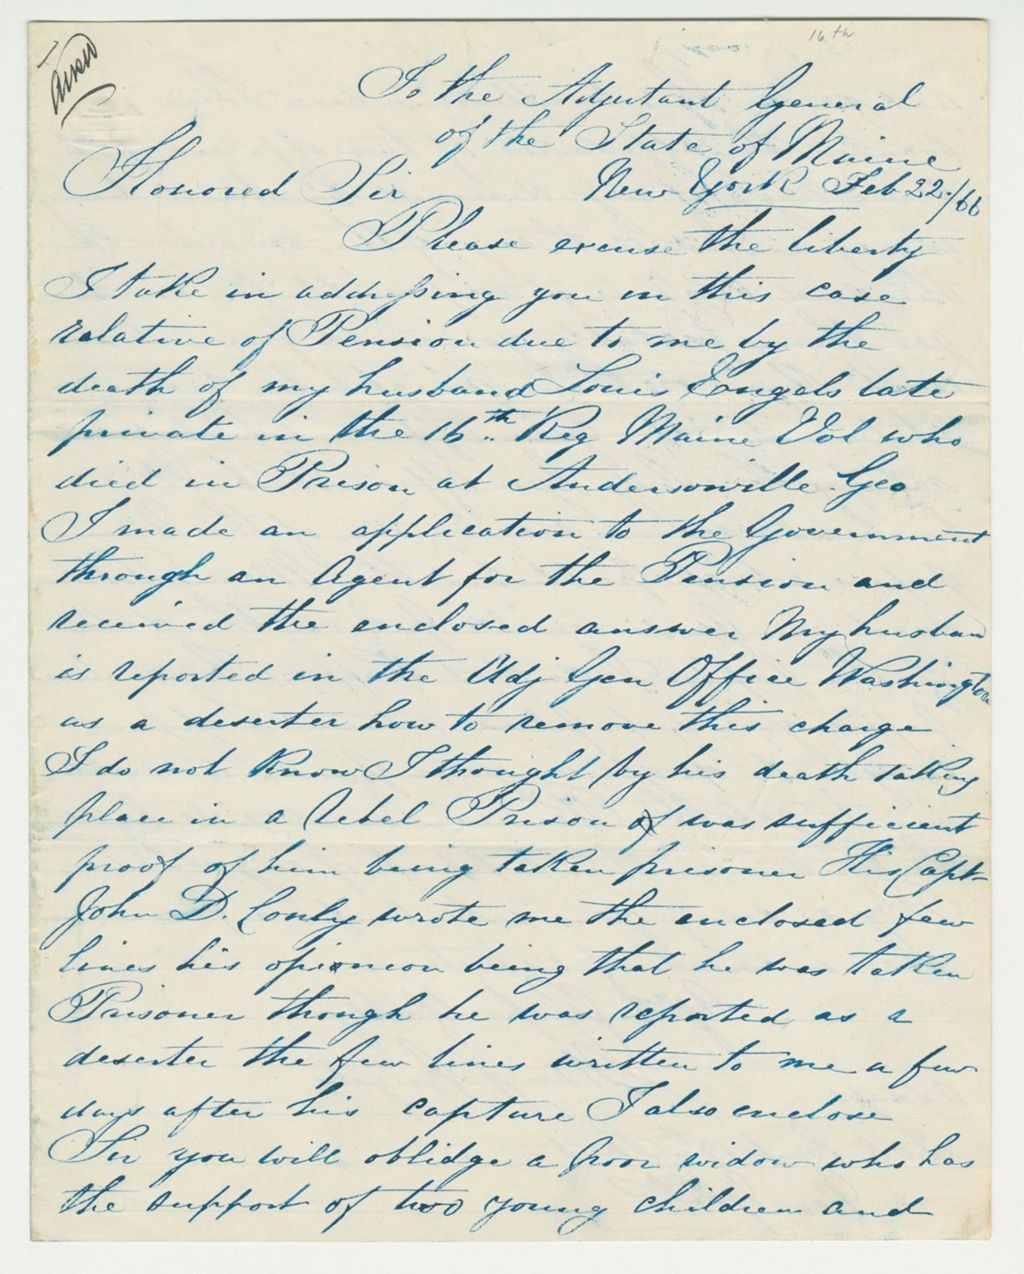 16th
Answd
To the Adjutant General
of the State of Maine
Honored Sir New York Feb 22/66
Please excuse the liberty
I take in addressing you in this case
relative of Pension due to me by the
death of my husband Louis Engels late
private in the 16th Reg Maine Vol who
died in Prison at Andersonville Geo
I made an application to the Government
through an Agent for the Pension and
received the enclosed answer My husban
is reported in the Adj Gen Office Washington
as a deserter how to remove this charge
I do not know I thought by his death taking
place in a rebel Prison was sufficient
proof of him being taken prisoner His Capt
John D. Conley wrote me the enclosed few
lines his opinion being that he was taken
Prisoner though he was reported as a
deserter the few lines written to me a few
days after his capture I also enclose
Sir you will oblidge a poor widow who has
the support of two young children and